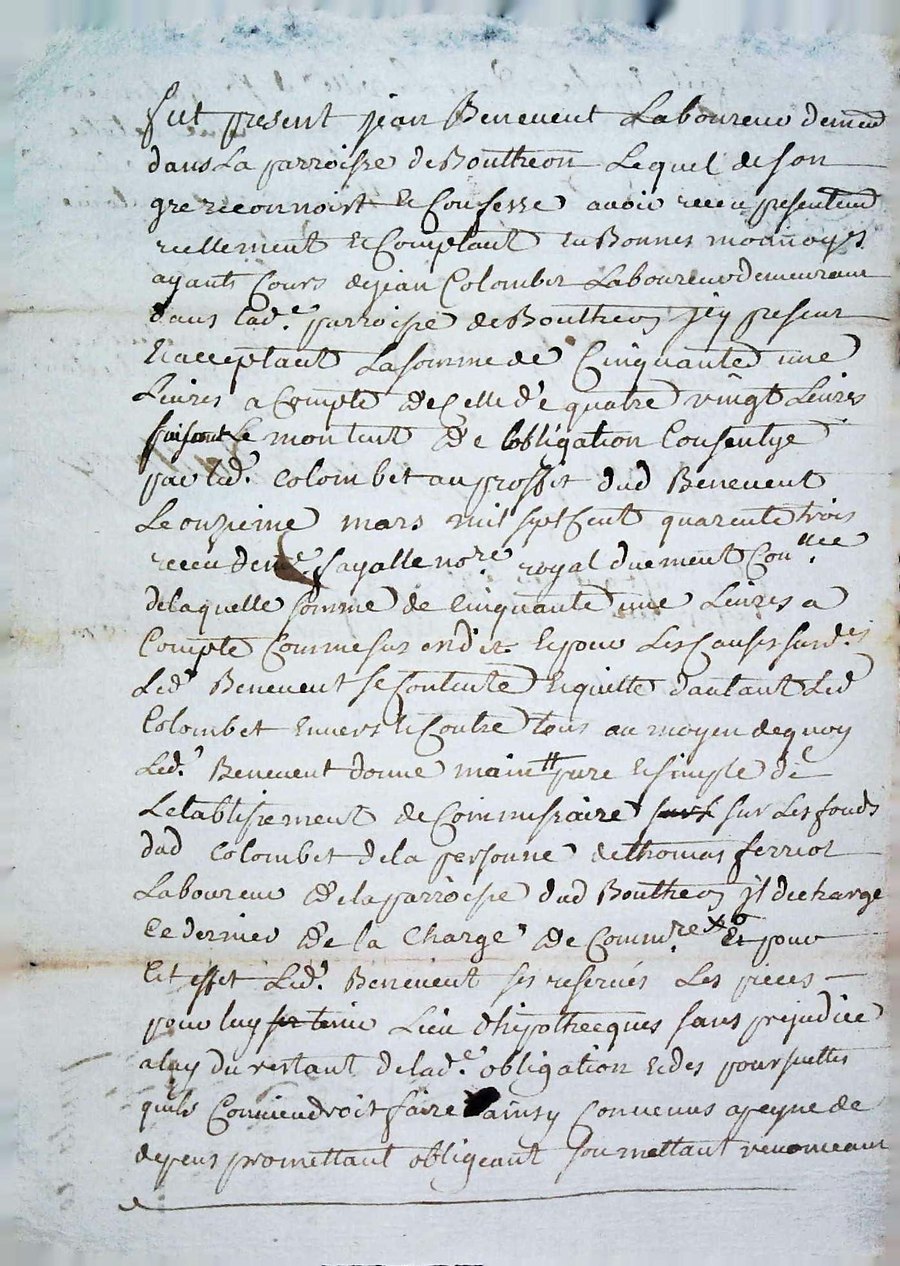 fut present jean Benevent Laboureur demeurt
dans La parroisse de Boutheon Lequel de son
gre reconnoist Et Confesse avoir receu presentemt
reellement Et Comptant En Bonnes monnoyes
ayants Cours de jean Colombet Laboureur demeurant
dans lade. parroisse de Boutheon jcy present
Et acceptant La somme de Cinquante une
Livres a Compte de Celle de quatre vingt Livres
faisant Le montent de lobligation Consentye
par led. Colombet au proffit dud Benevent
Le onzieme mars mil sept Cent quarente trois
receu de me. fayalle nore. royal duement Connllee
de laquelle somme de Cinquante une Livres a
Compte Comme sus en dit Et pour Les Causes susdes
Led. Benevent se Contente Et quitte dautant Led
Colombet Envers Et Contre tous au moyen de quoy
Led. Benevent donne maintt pure Et simple de
Letablissement de Commissaire sur Les fonds
dud Colombet de la personne de thomas ferriol
Laboureur de la parroisse dud Boutheon jl decharge
Ce dernier de la Charge de Commre Et pour
Cet effet Led. Benevent ses reserves Les pieces
pour luy tenir Lieu dhipothecques sans prejudice
a luy du restant de lade. obligation Et des poursuittes
quils Conviendroit faire ainsy Convenus a peyne de
depens promettant obligeant soumettant renonceant